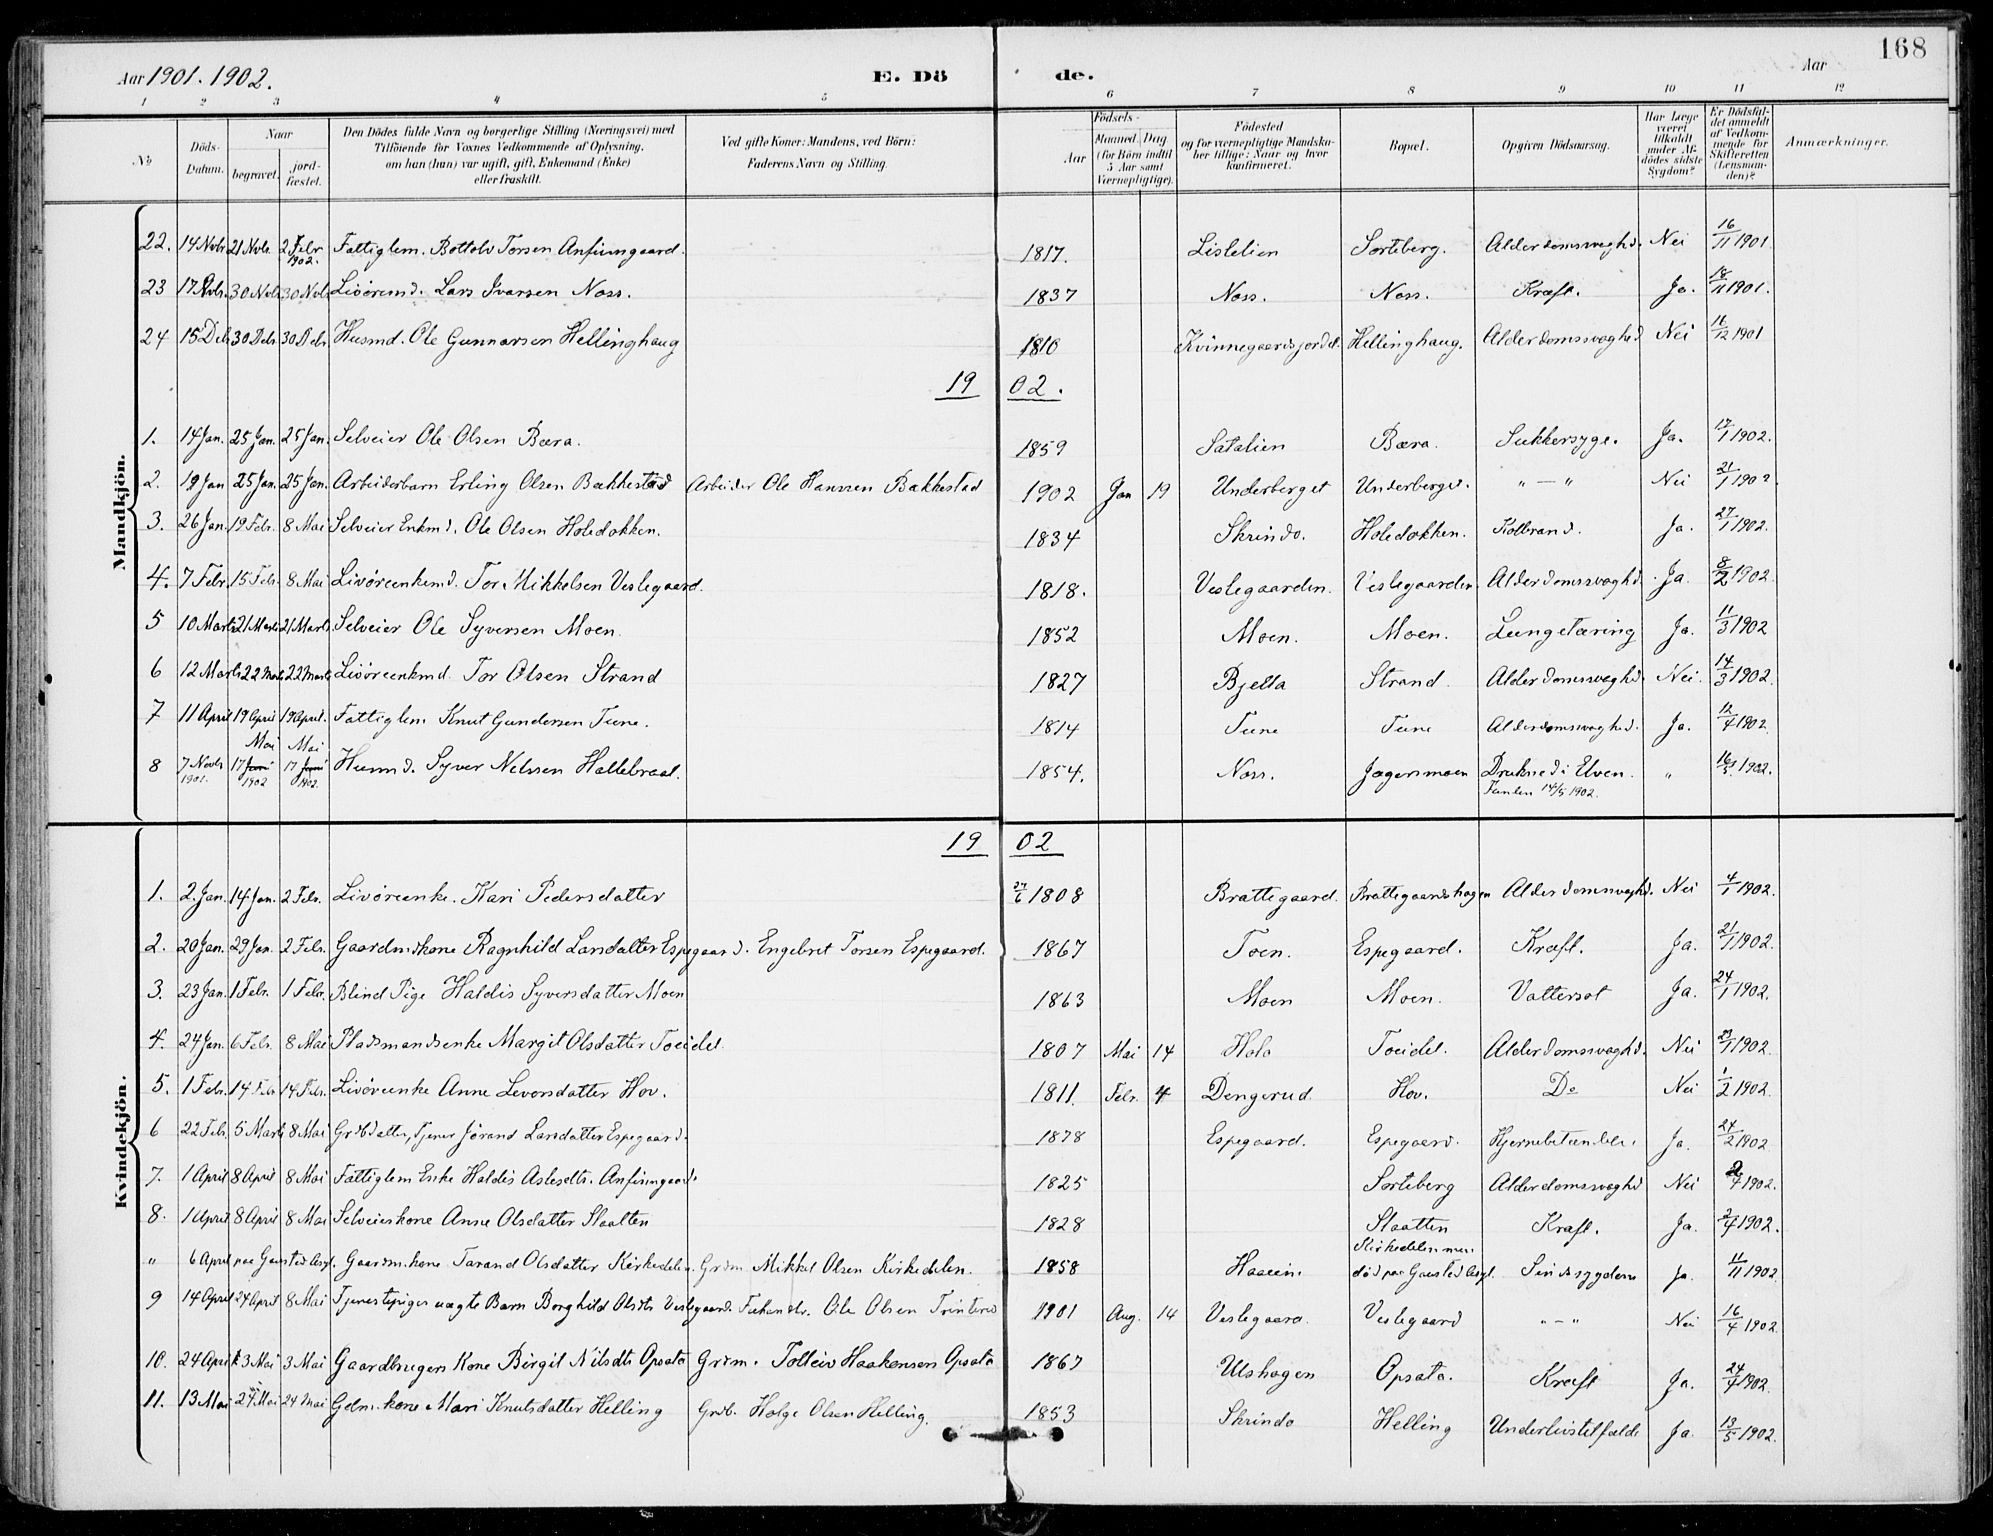 168
Aar 1901. 1902. E. Dö de. Aar
1 2 3 4 5 6 7 8 9 10 11 12
No Döds-Datum. Naar begravet. jord-fæstet. Den Dödes fulde Navn og borgerlige Stilling (Næringsvei) med Tilföiende for Voxnes Vedkommende af Oplysning, om han (hun) var ugift, gift, Enkemand (Enke) eller fraskilt. Ved gifte Koner: Mandens, ved Börn: Faderens Navn og Stilling. Födsels- Aar Maaned Dag (for Börn indtil 5 Aar samt Værnepligtige). Födested og for værnepligtige Mandskaber tillige: Naar og hvor konfirmeret. Bopæl. Opgiven Dödsaarsag. Har Læge været tilkaldt under Afdödes sidste Sygdom? Er Dödsfaldet anmeldt af Vedkommende for Skifteretten (Lensmanden)? Anmærkninger.
Mandkjön.
22. 14 Novbr 21 Novb. 2 Febr 1902. Fattiglem. Bottolv Torsen Anfinngaard. 1817. Listelien Sorteberg. Alderdomssvaghd. Nei 16/11 1901.
23 17 Novb. 30 Novb 30 Novb. Livøremd. Lars Ivarsen Noss. 1837 Noss. Noss. Kræft. Ja. 18/11 1901.
24 15 Deb 30 Deb 30 Deb Husmd. Ole Gunnarsen Hellinghaug 1810 Kvinnegaardsjordet. Hellinghaug. Alderdomssvaghed Nei 16/12 1901
19 02.
1. 14 Jan. 25 Jan. 25 Jan. Selveier Ole Olsen Bæra. 1859 Satalien Bæra. Sukkersyge. Ja. 17/1 1902.
2. 19 Jan 25 Jan. 25 Jan. Arbeiderbarn Erling Olsen Bakkestad Arbeider Ole Hanssen Bakkestad 1902 Jan 19 Underberget Underberget. " — " Nei 21/1 1902.
3. 26 Jan. 19 Febr. 8 Mai Selveier Enkmd. Ole Olsen Holedokken. 1834 Skrindo. Holedokken. Kolbrand. Ja. 27/1 1902.
4. 7 Febr. 15 Febr. 8 Mai Livøreenkemd. Tor Mikkelsen Veslegaard. 1818. Veslegaarden. Veslegaarden. Alderdomssvaghd. Ja. 8/2 1902.
5 10 Marts 21 Marts 21 Marts. Selveier Ole Syversen Moen. 1852 Moen. Moen. Lungetæring Ja. 11/3 1902
6 12 Marts 22 Marts 22 Marts Livøreenkmd. Tor Olsen Strand 1827 Bjella Strand. Alderdomssvaghd. Nei. 14/3 1902.
7 11 April 19 April 19 April. Fattiglem Knut Gundersen Tune. 1814 Tune Tune Alderdomssvaghed. Ja. 12/4 1902.
Mai Mai
8 7 Novbr 1901. 17 Juni 1902 17 Juni 1902. Husmd. Syver Nilssen Hallebraat. 1854. Noss. Jægersmoen Druknede i Elven. Funden 14/5 1902. " 16/5 1902.
Kvindekjön.
19 02
1. 2. Jan. 14 Jan. 2 Febr. Livøreenke. Kari Pedersdatter 27/6 1808 Brattegaard. Brattegaardshagen Alderdomssvaghd. Nei 4/1 1902.
2. 20 Jan. 29 Jan. 2 Febr. Gaardmdskone Ragnhild Larsdatter Espegaard. Engebret Torsen Espegaard. 1867 Toen. Espegaard. Kræft. Ja. 21/1 1902.
3. 23 Jan. 1 Febr. 1 Febr. Blind Pige Haldis Syversdatter Moen 1863 Moen Moen. Vattersot Ja. 24/1 1902.
4. 24 Jan. 6 Febr. 8 Mai Pladsmandsenke Margit Olsdatter Toeidet. 1807 Mai 14 Holo Toeidet. Alderdomssvaghd. Nei 27/1 1902.
5. 1 Febr. 14 Febr 14 Febr. Livøreenke Anne Levorsdatter Hov. 1811. Febr. 4 Dengerud Hov. Do Nei 1/2 1902.
6 22 Febr. 5 Marts 8 Mai Grdbdatter, Tjener Jørand Larsdatter Espegaard. 1878 Espegaard. Espegaard. Hjernebetændelse. Ja. 24/2 1902
7. 1 April 8 April 8 Mai Fattiglem Enke Haldis Aslesdtr. Anfinngaard. 1825 Sorteberg Alderdomssvaghd Nei 2/4 1902.
8. 1 April 8 April 8 Mai Selveierskone Anne Olsdatter Slaatten 1828 Slaatten Kræft. Ja. 2/4 1902.
" 6 April paa Gaustad Asyl. Gaardm.kone Tarand Olsdatter Kirkedelen. Grdm. Mikkel Olsen Kirkedelen. 1858 Haaein. Kirkedelen men død paa Gaustad Asyl. Sindssygdom Ja. 11/11 1902.
9 14 April 24 April 8 Mai Tjenestepiges uægte Barn Borghild Olsdtr Veslegaard. Ole Olsen 1901 Aug. 14 Veslegaard. Veslegaard " — " Nei 16/4 1902.
10. 24 April 3 Mai 3 Mai Gaardbrugers Kone Birgit Nilsdtr Opsata Grdm. Tolleiv Haakensen Opsata 1867 Ulshagen Opsata. Kræft Ja. 24/4 1902.
11. 13 Mai 24 Mai 24 Mai Gdm.kone Mari Knutsdatter Helling Grdb. Holge Olsen Helling. 1853 Skrindo Helling Underlivstilfælde Ja. 13/5 1902.